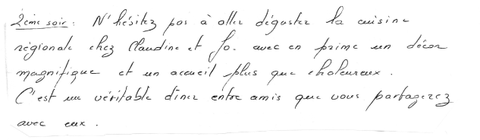 2ème soir : N'hésitez pas à aller déguster la cuisine
régionale chez Claudine et Jo. avec en prime un décor
magnifique et un accueil plus que chaleureux.
C'est un véritable diner entre amis que vous partagerez
avec eux.